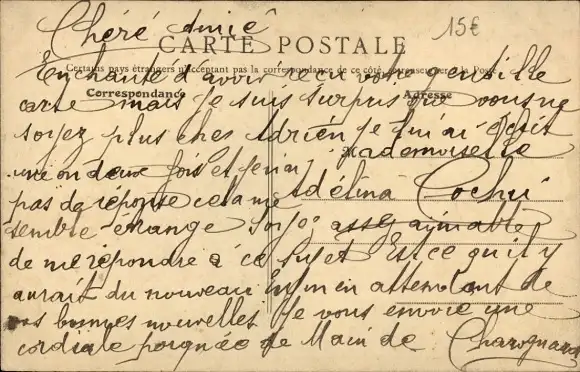 Cheré Amie
15€
CARTE POSTALE
Certains pays étrangers n'acceptant pas la correspondance de ce côté, se renseigner à la Poste
Enchanté d'avoir reçu votre gentille
Correspondance
Adresse
carte mais je suis surpris que vous ne
soyez plus chez Adrien Je lui ai écrit
Mademoiselle
une ou deux fois et je n'ai
Adélina Cochu
pas da réponse cela me
semble étrange Soyez assez aimable
de me répondre à ce sujet Est ce qu'il y
aurait du nouveau Enfin en attendant de
vos bonnes nouvelles Je vous envoie une
cordiale poignée de Main de